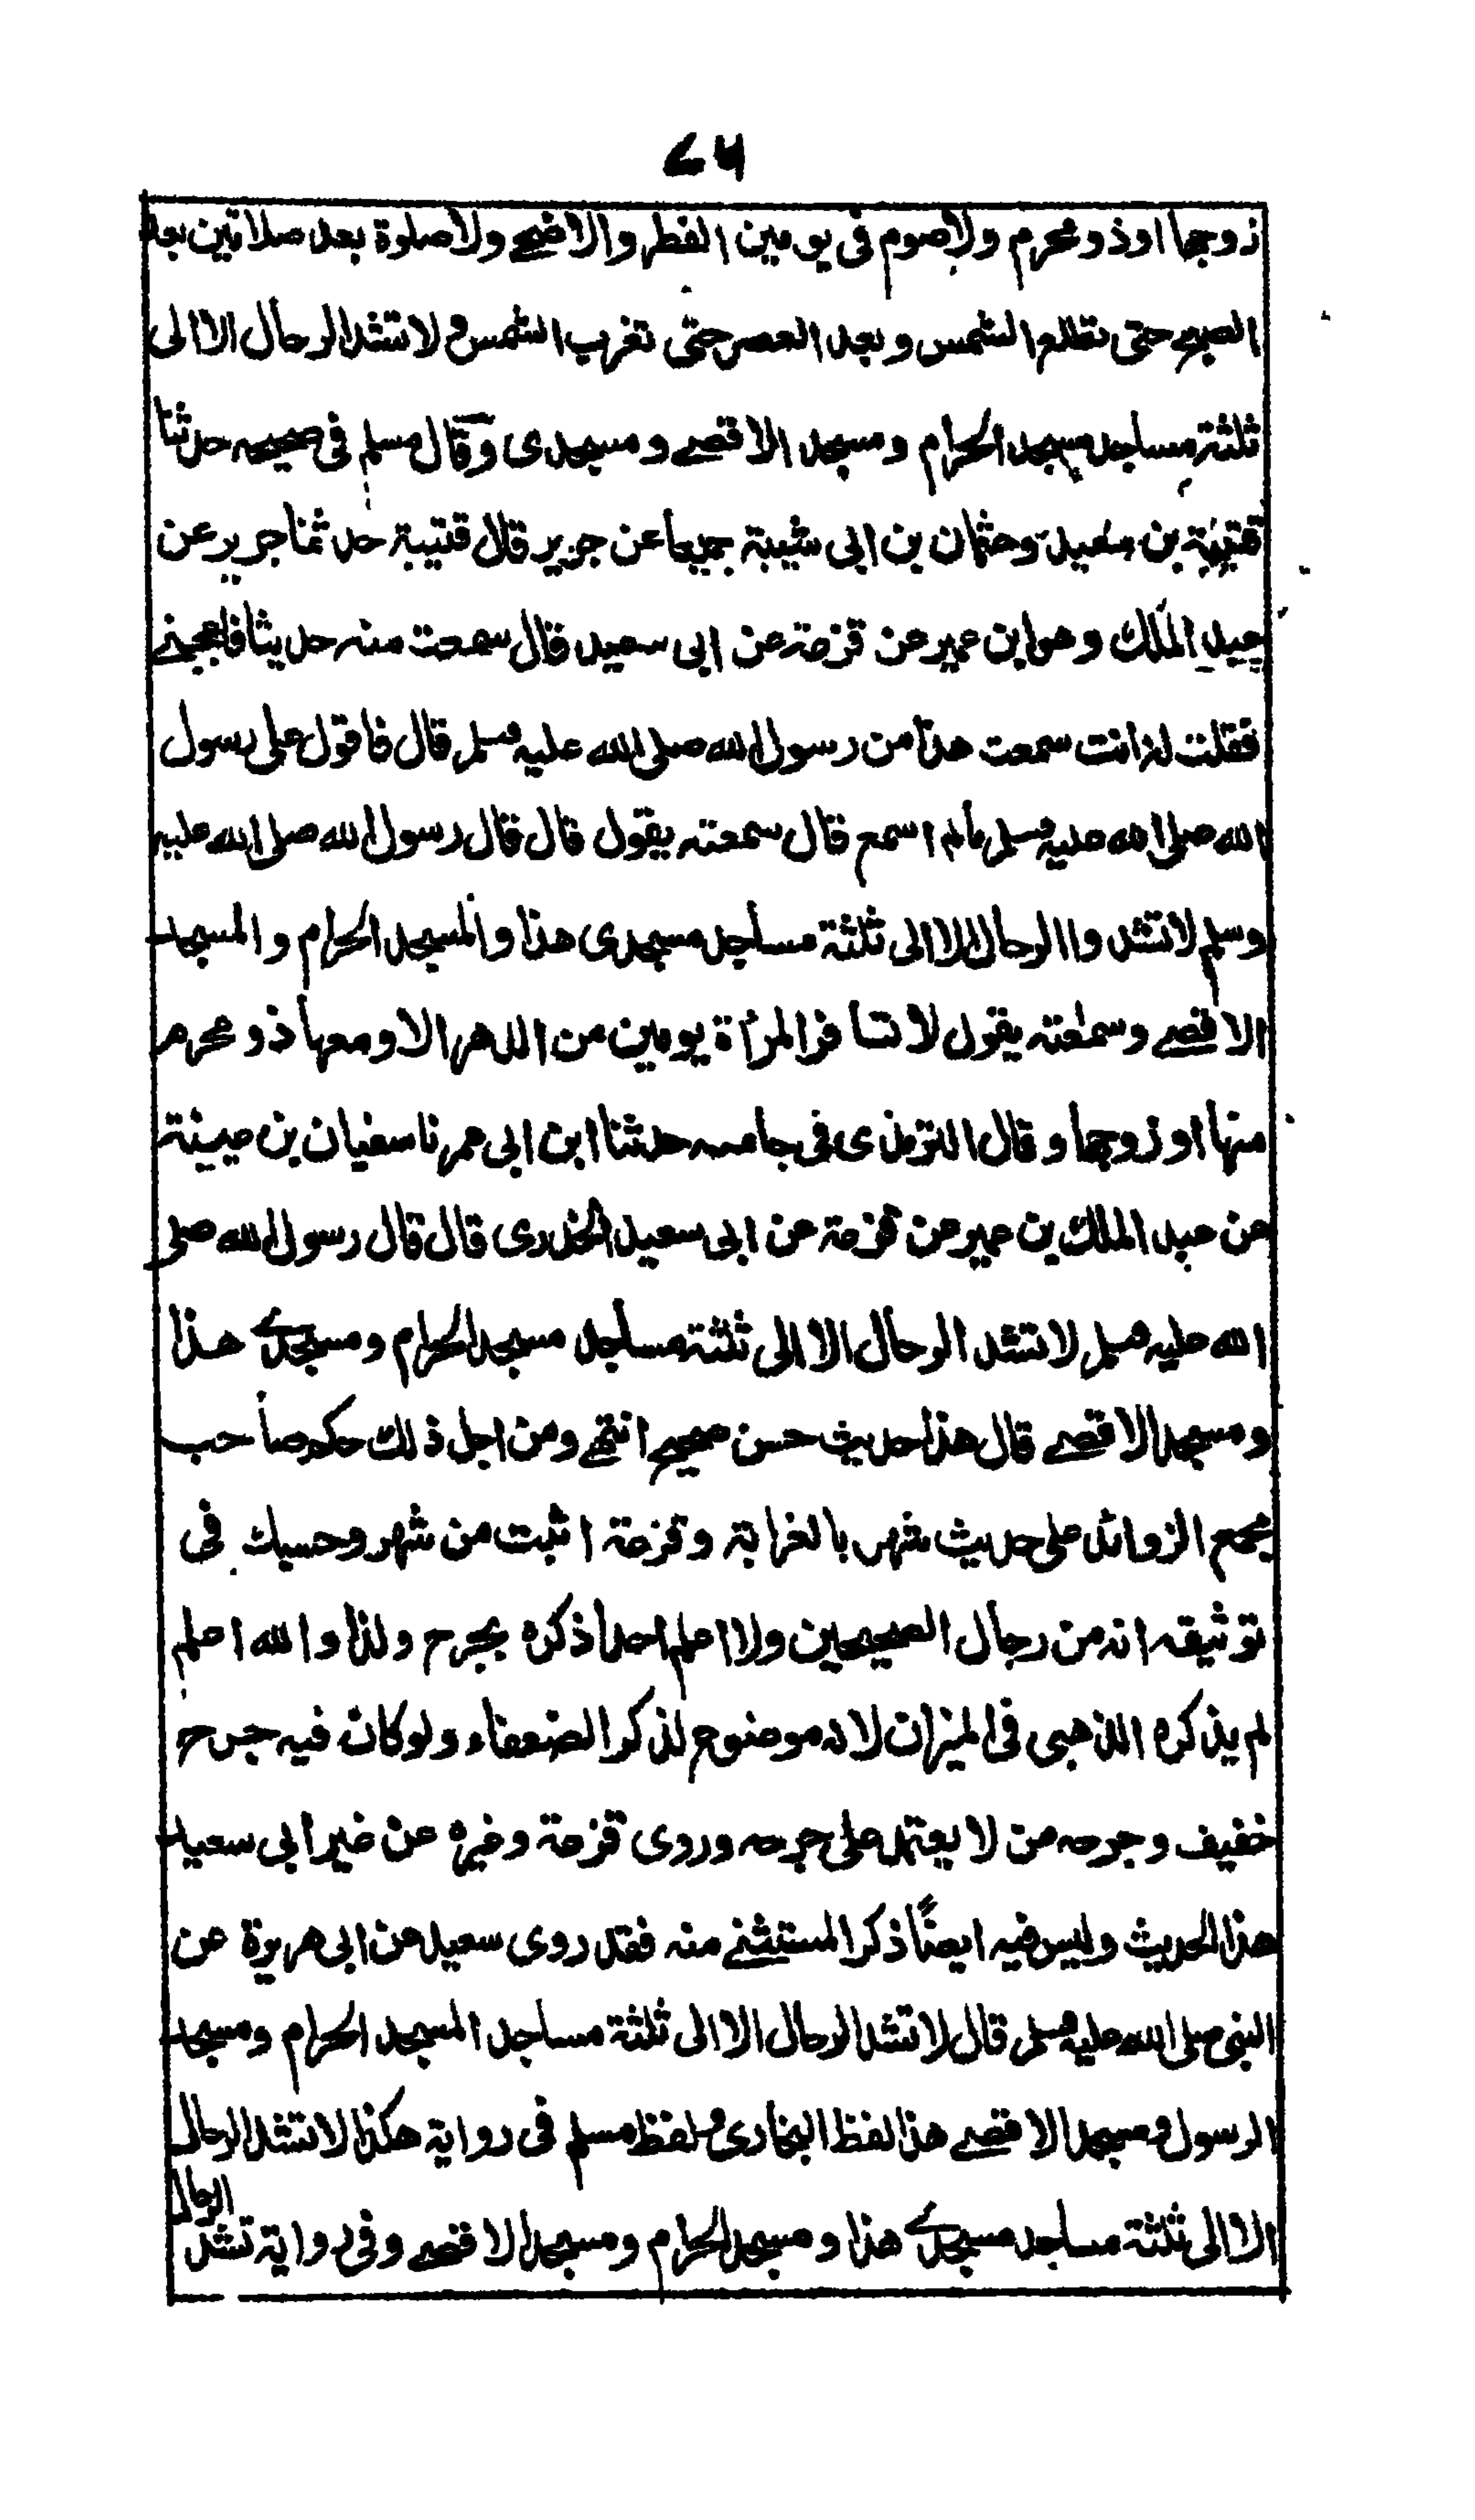 ۷۶
زوجها او ذو محرم ولا صوم فى يومين الفطر والاضحے ولا صلوة بعد صلاتين بعد
الصبح حتى تطلع الشمس وبعد العصر حتى تغرب الشمس ولا تشد الرحال الا الى
ثلثة مساجد مسجد الحرام ومسجد الاقصے ومسجدى وقال مسلم فى صحيحه حدثنا
قتيبة بن سعيد وعثمان بن ابى شيبة جميعا عن جرير قال قتيبة حدثنا جرير عن
عبد الملك وهو ابن عمير عن قزعة عن ابى سعيد قال سمعت منه حديثا فاعجبنے
فقلت له انت سمعت هذا من رسول الله صلى الله عليه وسلم قال فاقول على رسول
الله صلى الله عليه وسلم مالم اسمع قال سمعته يقول قال قال رسول الله صلى الله عليه
وسلم لا تشدوا الرحال الا الى ثلثة مساجد مسجدى هذا والمسجد الحرام والمسجد
الاقصے وسمعته يقول لا تسافر المرأة يومين من الدهر الا ومعها ذو محرم
منها او زوجها وقال الترمذى فى جامعه حدثنا ابن ابى عمر نا سفيان بن عيينة
عن عبد الملك بن عمير عن قزعة عن ابى سعيد الخدرى قال قال رسول الله صلى
الله عليه وسلم لا تشد الرحال الا الى ثلثة مساجد مسجد الحرام ومسجدے هذا
ومسجد الاقصے قال هذا حديث حسن صحيح انتهے ومن اجل ذلك حكم صاحب
مجمع الزوائد على حديث شهر بالغرابة وقزعة اثبت من شهر وحسبك فى
توثيقه انه من رجال الصحيحين ولا اعلم احدا ذكره بجرح ولذا والله اعلم
لم يذكره الذهبى فى الميزان لانه موضوع لذكر الضعفاء ولو كان فيه جرح
خفيف وجرحه من لا يعتمد على جرحه وروى قزعة وغيره عن غير ابى سعيد
هذا الحديث وليس فيه ايضًا ذكر المستثنے منه فقد روى سعيد عن ابى هريرة عن
النبى صلى الله عليه وسلم قال لا تشد الرحال الا الى ثلثة مساجد المسجد الحرام ومسجد
الرسول ومسجد الاقصے هذا لفظ البخارى ولفظ مسلم فى رواية هكذا لا تشد الرحال
الا الى ثلثة مساجد مسجدے هذا ومسجد الحرام ومسجد الاقصے وفى رواية تشد الرحال